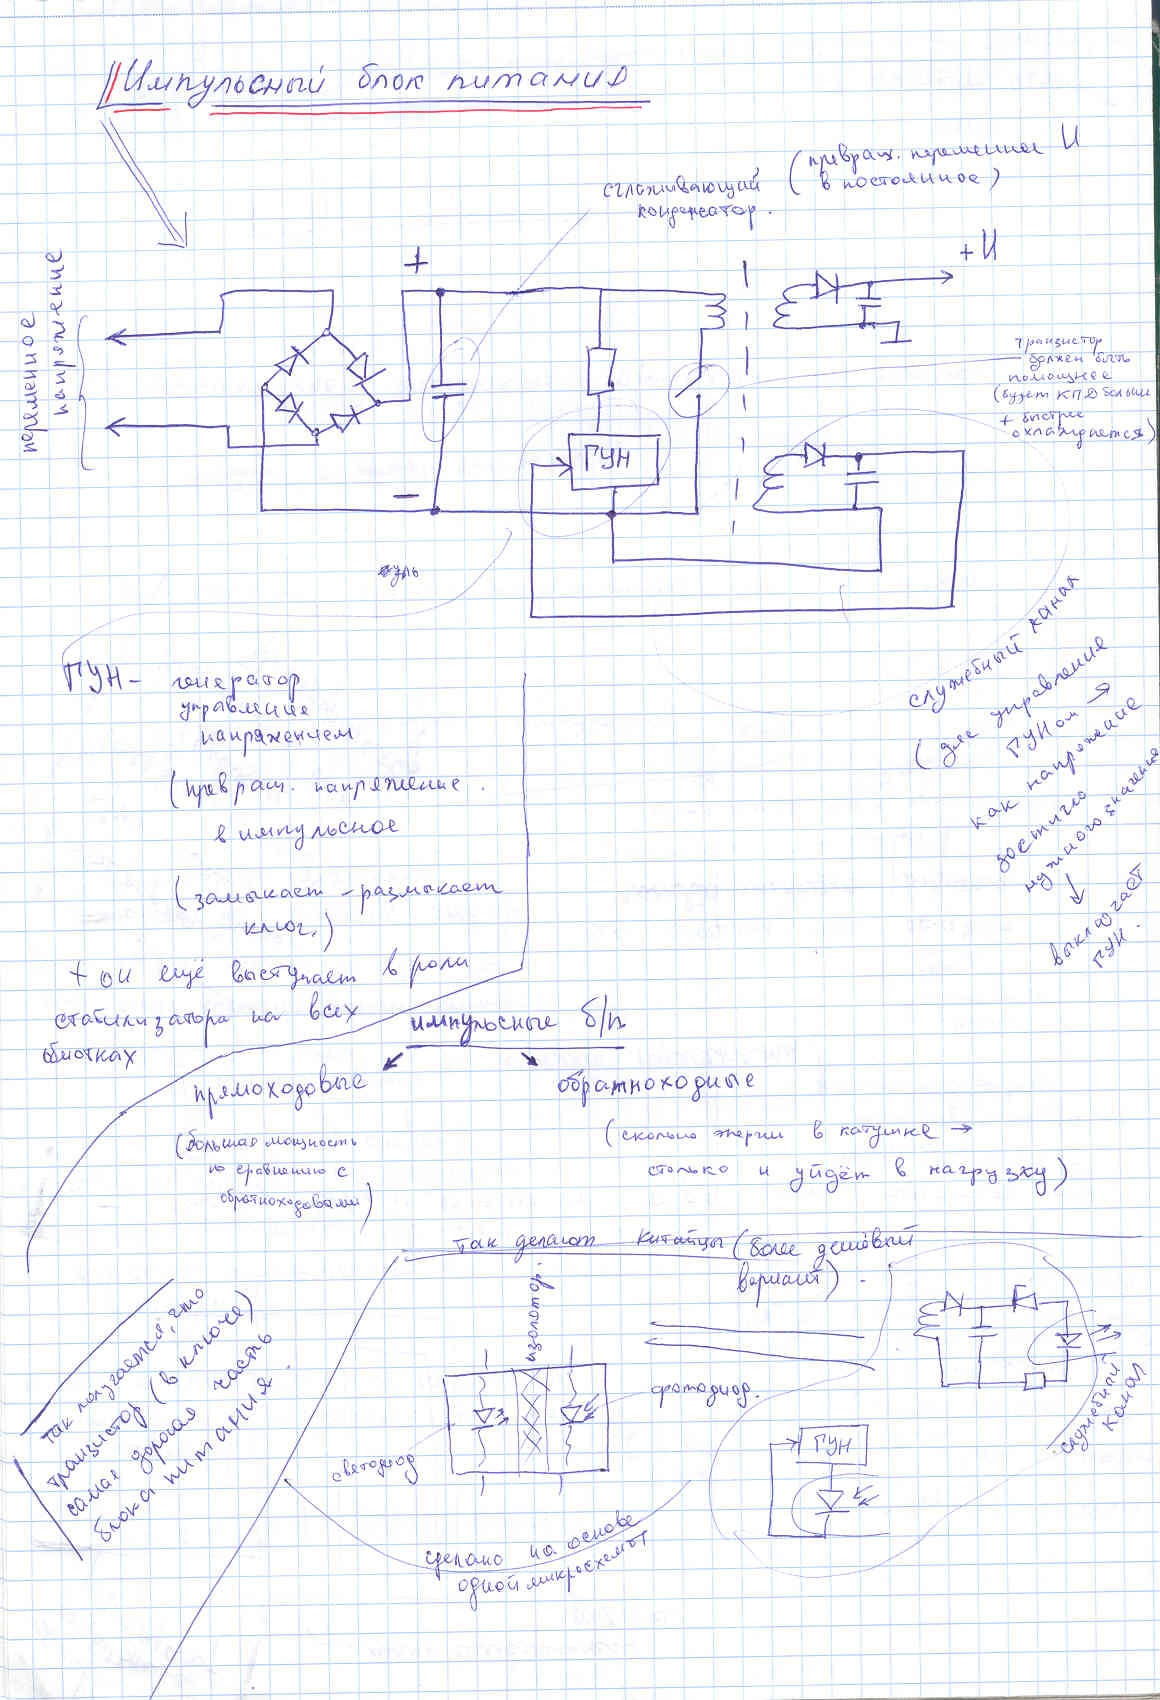 Импульсный блок питания
сглаживающий
конденсатор.
(превращ. переменное U
в постоянное)
переменное
напряжение
+
+U
транзистор
должен быть
помощнее
(будет КПД больше
+ быстрее
охлаждается)
ГУН
−
нуль
служебный канал
(для управления
ГУНом →
как напряжение
достигло
нужного значения
↓
выключает
ГУН.
ГУН – генератор
управление
напряжением
(превращ. напряжение.
в импульсное
(замыкает – размыкает
ключ.)
+ он ещё выступает в роли
стабилизатора на всех
обмотках
импульсные б/п
прямоходовые
обратноходные
(большая мощность
по сравнению с
обратноходовыми)
(сколько энергии в катушке →
столько и уйдёт в нагрузку)
так делают китайцы (более дешёвый
вариант).
Так получается, что
транзистор (в ключе)
самая дорогая часть
блока питания.
изолятор.
фотодиод.
светодиод
сделано на основе
одной микросхемы
ГУН
служебный
канал